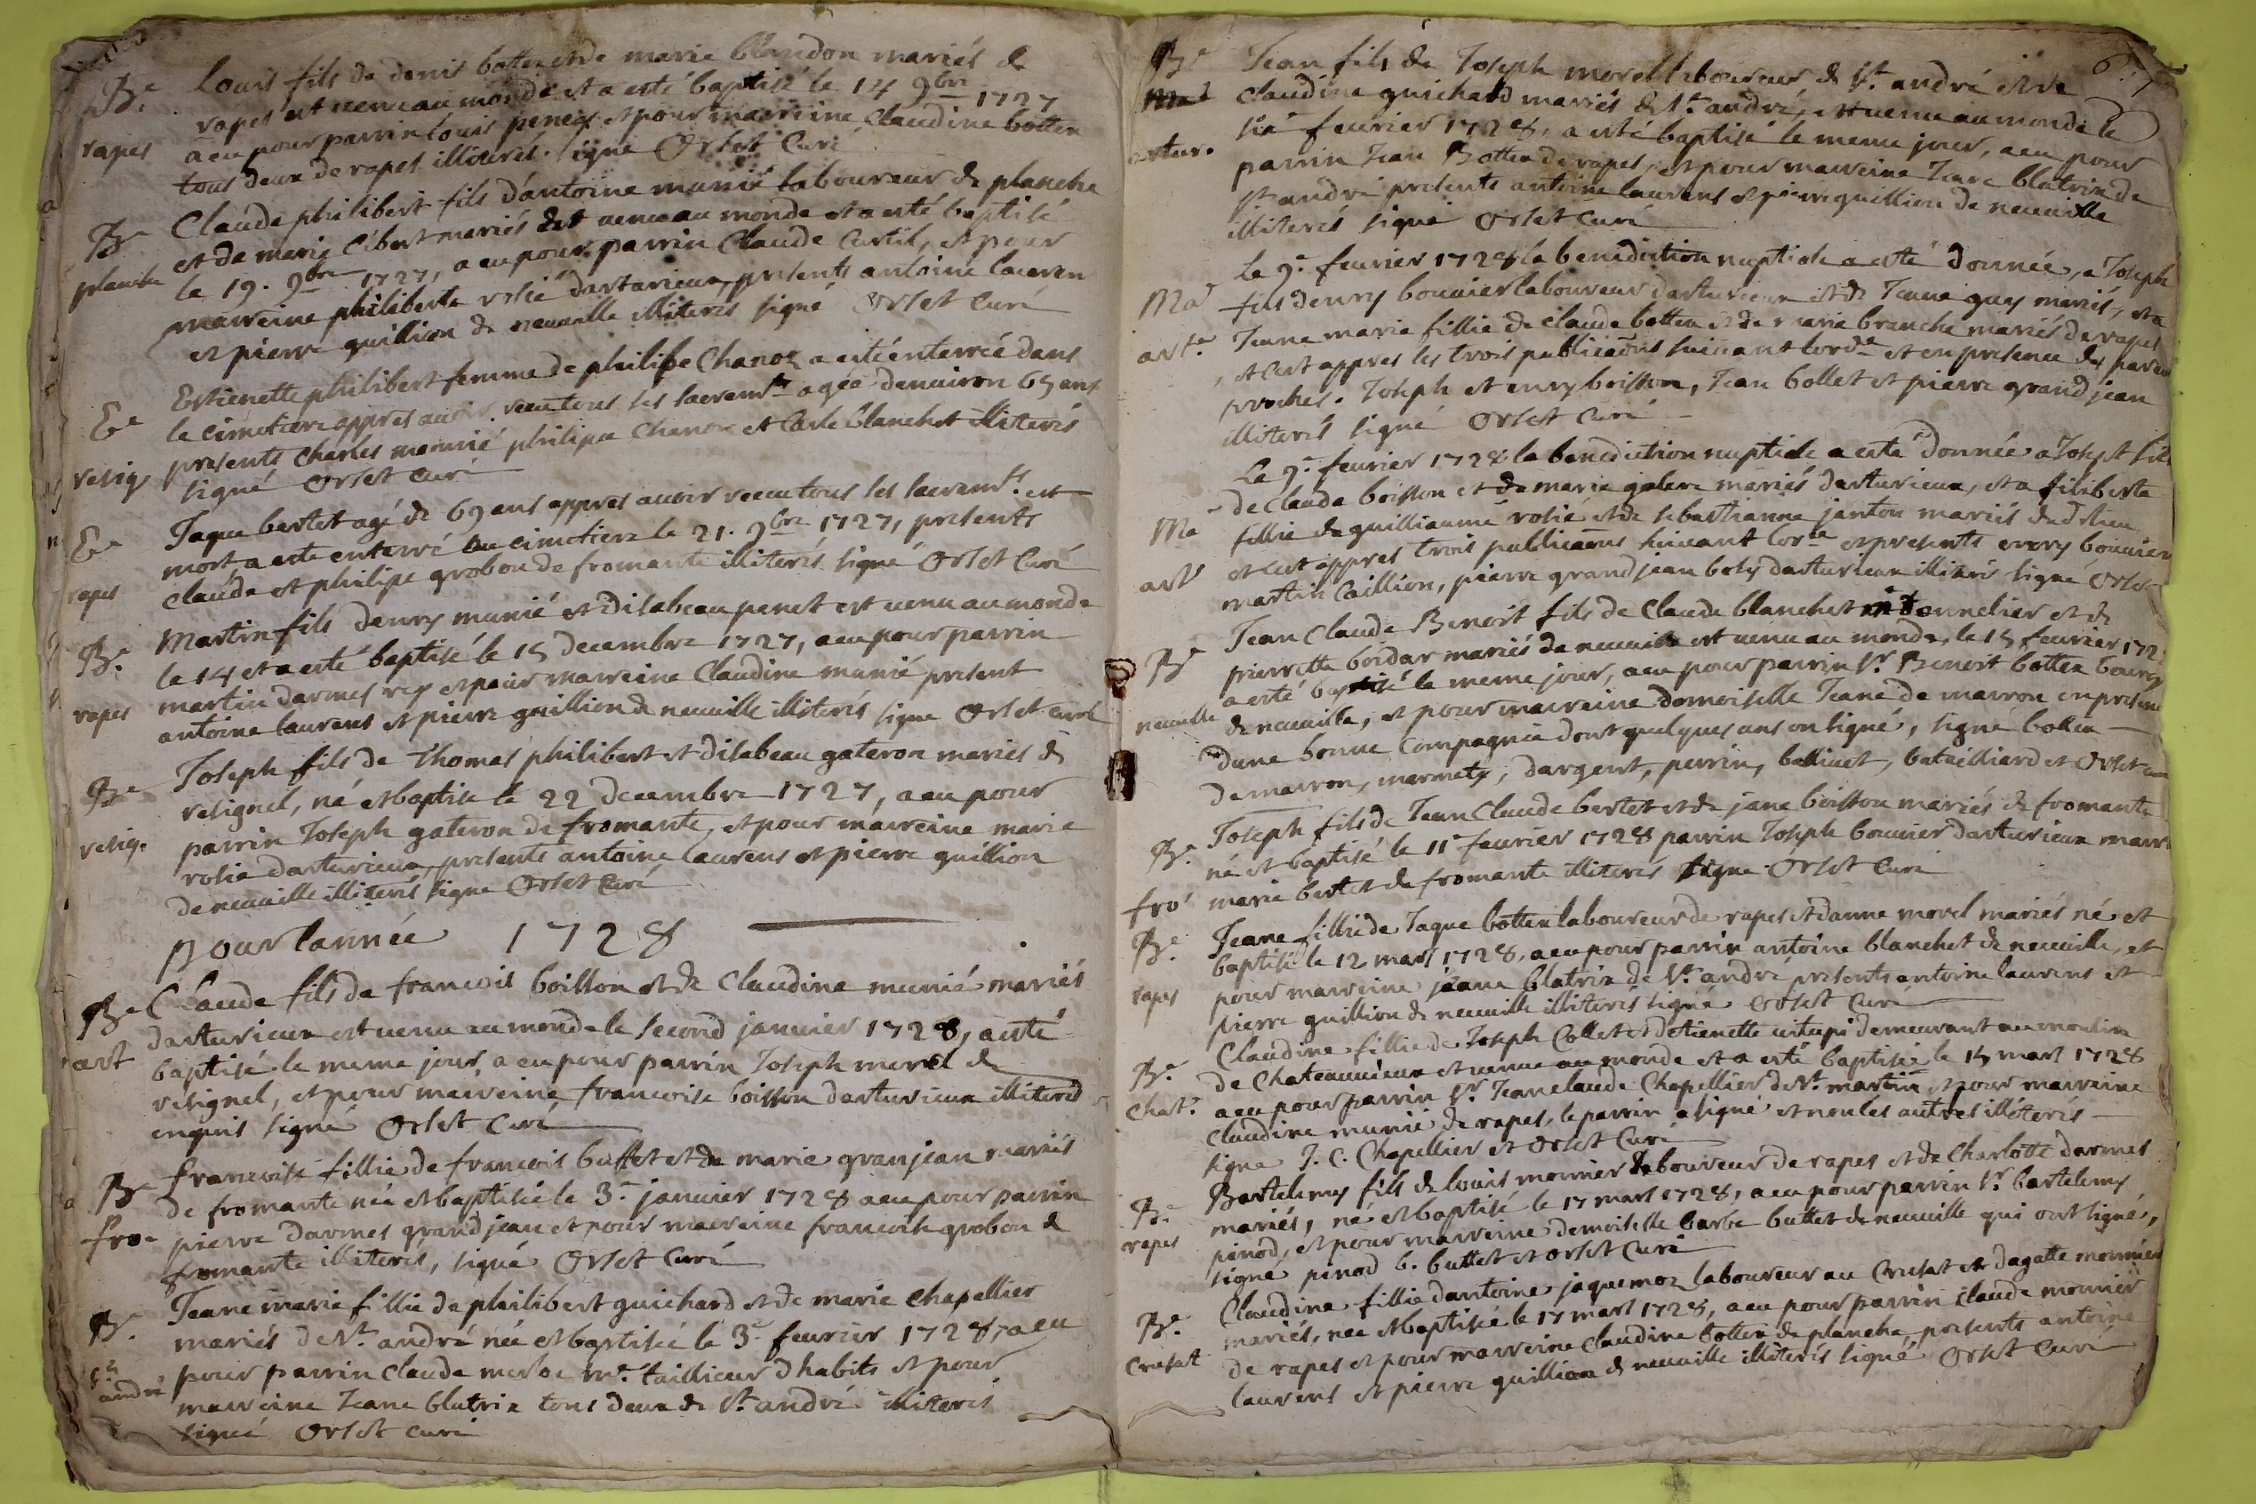 Be Louis fils de denis bottex et de marie blandon mariés de
rapes est venu au monde et a esté baptisé le 14 9bre 1727
rapes a eu pour parrin louis peneix et pour marreine Claudine bottex
tous deux de rapes illiterés. signé Orset Curé
Be Claude philibert fils dantoine munié laboureur de planche
et de marie Cibert mariés est venu au monde et a esté baptisé
planche le 19. 9bre 1727, a eu pour parrin Claude Curtil, et pour
marreine philiberte rosié darturieux, presents antoine lauren
et pierre guillion de neuville illiterés signé Orset Curé
Estienette philibert femme de philipe Chanoz a esté enterrée dans
Ee le cimetiere appres avoir receu tous les sacremts agée denuiron 65 ans
presents Charles meunié philipe Chanoz et Carle blanchet illiterés
resig signé Orset Curé
Jaque bertet agé de 69 ans appres avoir receu tous les sacremts. est
Ee mort a esté enterré au cimetiere le 21. 9bre 1727, presents
rapes Claude et philipe grobon de fromante illiterés signé Orset Curé
Martin fils denry munié et disabeau penet est venu au monde
Be le 14 et a esté baptisé le 15 decembre 1727, a eu pour parrin
martin darmes rey et pour marreine Claudine munié present
rapes antoine laurens et pierre guillion de neuville illiterés signe Orset curé
Joseph fils de Thomas philibert et disabeau gateron mariés de
Be resignel, né et baptisé le 22 decembre 1727, a eu pour
parrin Joseph gateron de fromante, et pour marreine marie
resig. rosié darturieux, presents antoine laurens et pierre guillion
de neuville illiterés signe Orset Curé
pour lannée 1728
Be Claude fils de francois boisson et de Claudine munié mariés
darturieux est venu au monde le second janvier 1728, a esté
art baptisé le meme jour, a eu pour parrin Joseph morel de
resignel, et pour marreine francoise boisson darturieux illiterés
enquis signé Orset Curé
francoise fillie de francois buffet et de marie granjean mariés
Be de fromante née et baptisée le 3e janvier 1728 a eu pour parrin
fro pierre darmes grandjean et pour marreine francoise grobon de
fromante illiterés, signé Orset Curé
Jeane marie fillie de philibert guichard et de marie Chapellier
Be. mariés de St andré née et baptisée le 3e feurier 1728, a eu
St andré pour parrin Claude merloz me taillieur dhabits et pour
marreine Jeane blatrix tous deux de St andré illiterés
signé Orset Curé
6e
Be Jean fils de Joseph morel laboureur de St andré et de
Claudine guichard mariés de St andré, est venu au monde le
feurier 1728, a esté baptisé le meme jour, a eu pour
artur. parrin Jean Bottex de rapes, et pour marreine Jeane blatrix de
St andré presents antoine laurens et pierre guillion de neuville
illiterés signé Orset Curé
Le 9e feurier 1728 la benediction nuptiale a esté donnée, a Joseph
Ma fils denry bouuier laboureur darturieux et de Jeane guy mariés, et a
arte Jeane marie fillie de claude bottex et de marie branche mariés de rapes
, et cest appres les trois publicaons suiuant lorde et en presence des parens
proches. Joseph et enry boisson, Jean bollet et pierre grandjean
illiterés signé Orset Curé
Le 9e feurier 1728 la benediction nuptiale a esté donnée a Joseph fils
de Claude boisson et de marie galere mariés darturieux, et a filiberte
Ma fillie de guilliaume rosié et de sebastianne janton mariés dud. lieu
et cest appres trois publicaons suiuant lorde et presents enry bouuier
art martin Caillion, pierre grandjean boby darturieux illiterés signé Orset
Jean Claude Benoit fils de Claude blanchet tonnelier et de
Be pierrette boidar mariés de neuuille est venu au monde, le 15 feurier 172
a esté baptisé le meme jour, a eu pour parrin Sr Benoit bottex bourg
neuuille de neuuille, et pour marreine domoiselle Jeane de marron en presence
dune bonne Compagnie dont quelques uns on signé, signé bottex
demarron, marmety, dargent, perrin, bellivet, bataillard et Orset cu
Joseph fils de Jean Claude bertet et de jane boisson mariés de fromante
Be. né et baptisé le 11e feurier 1728 parrin Joseph bouuier darturieux marr
fro marie bertet de fromante illiterés signe Orset Curé
Be. Jeane fillie de Jaque bottex laboureur de rapes et danne morel mariés né et
baptisé le 12 mars 1728, a eu pour parrin antoine blanchet de neuuille, et
rapes pour marreine jeane blatrix de St andré presents antoine laurens et
pierre guillion de neuuille illiterés signé Orset Curé
Claudine fillie de Joseph Collet et detienette uitupi demeurant au moulin
Be. de Chateauuieux est venue au monde et a esté baptisée le 15 mars 1728
Chat. a eu pour parrin Sr. Jeanclaude Chapellier de St. martin et pour marreine
Claudine munié de rapes, le parrin a signé et non les autres illiterés
signe J. C. Chapellier et Orset Curé
Bartelemy fils de louis monnier laboureur de rapes et de Charlotte darmes
Be mariés, né et baptisé le 17 mars 1728, a eu pour parrin Sr bartelemy
rapes pinod, et pour marreine demoiselle barbe buttet de neuuille qui ont signé,
signé pinod b. buttet et Orset Curé
Claudine fillie dantoine jaquemoz laboureur au Crusat et dagatte monnier
Be. mariés, née et baptisée le 17 mars 1728, a eu pour parrin Claude monnier
Crusat de rapes et pour marreine Claudine bottex de planche, presents antoine
laurens et pierre guillion de neuuille illiterés signé Orset Curé